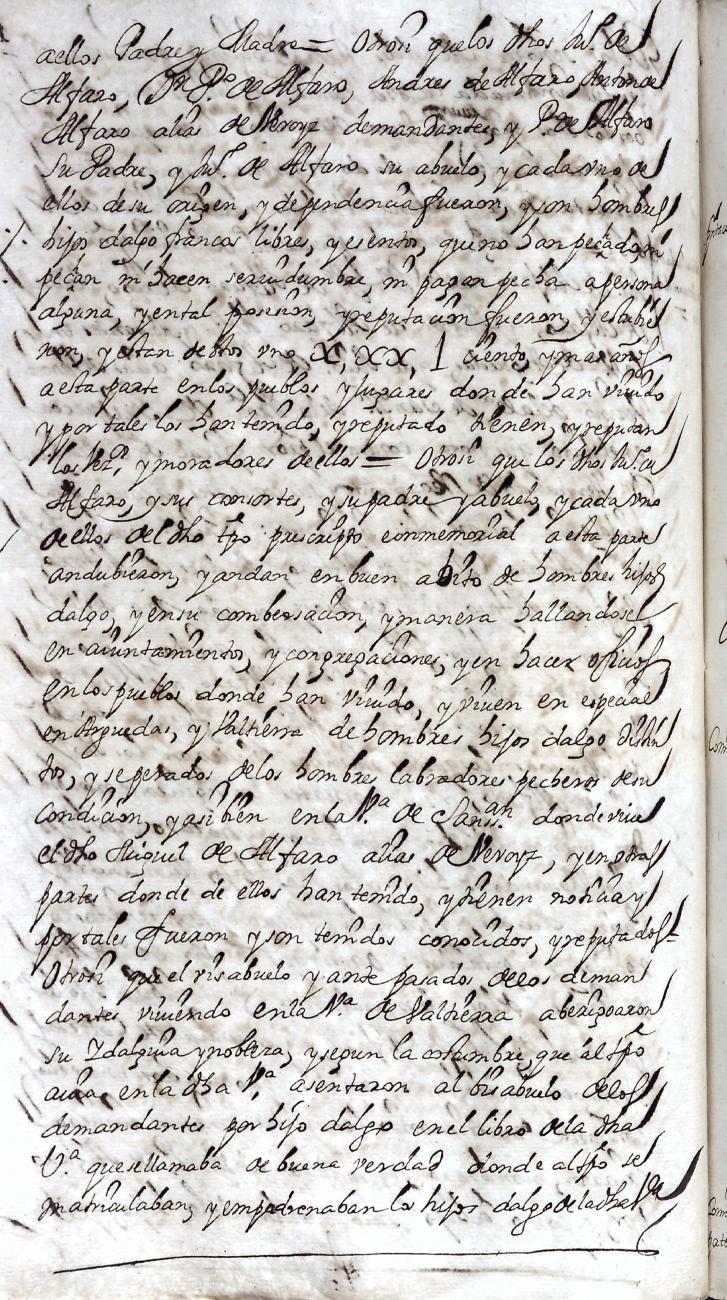 aellos Padre y Madre = Otrosi que los dhos Ju.º de
Alfaro, Dn P.º de Alfaro, Andres de Alfaro, Anton de
Alfaro alias de Veroyz demandantes, y P.º de Alfaro
su Padre, y Ju.º de Alfaro su abuelo, y cada vno de
ellos de su origen, y dependencia fueron, y son hombres
hijos dalgo francos libres, y esentos, que no han pechado ni
pechan ni hacen seruidumbre, ni pagan pecha a persona
alguna, y en tal posesion, y reputacion fueron, y estubie
ron, y estan destos vno X, XX, L ciento, y mas años
a esta parte en los pueblos y lugares donde han viuido
y por tales los han tenido, y reputado tienen, y reputan
los Vez.s y moradores de ellos = Otrosi que los dhos Ju.º de
Alfaro, y sus consortes, y su padre y abuelo, y cada vno
de ellos del dho tpo prescripto e inmemorial a esta parte
andubieron, y andan en buen abito de hombres hijos
dalgo, y en su combersacion, y manera hallandose
en aiuntamientos, y congregaciones, y en hacer oficios
en los pueblos donde han viuido, y viuen en especial
en Arguedas, y Valtierra de hombres hijos dalgo distin
tos, y seperados de los hombres labradores pecheros de su
condicion, y asi bien en la V.ª de Sanss.an donde viue
el dho Miguel de Alfaro alias de Veroyz, y en otras
partes donde de ellos han tenido, y tienen noticia y
por tales fueron y son tenidos conocidos, y reputados=
Otrosi que el visabuelo y ante pasados de los deman
dantes viuiendo en la V.ª de Valtierra aberigoaron
su Ydalguia y nobleza, y segun la costumbre, que al tpo
auia en la dha V.ª asentaron al bisabuelo de los
demandantes por hijo dalgo en el libro de la dha
V.ª que se llamaba de buena verdad donde al tpo se
matriculaban, y empadronaban los hijos dalgo de la dha V.ª